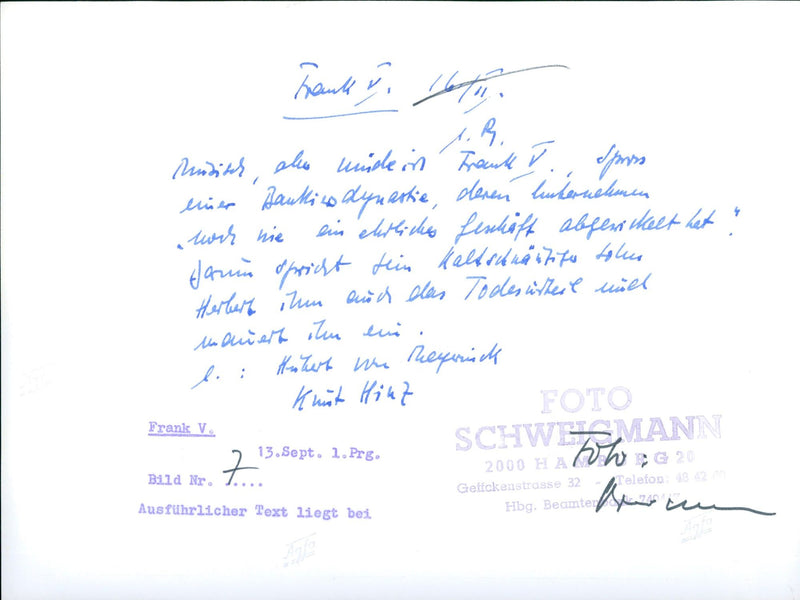 Frank V. 16/II.
1. Pr.
Musisch, aber müde ist Frank V., Spross
einer Bankiersdynastie, deren Unternehmen
"noch nie ein ehrliches Geschäft abgewickelt hat".
Darum spricht sein kaltschnäuziger Sohn
Herbert ihm auch das Todesurteil und
mauert ihn ein.
l.: Hubert von Meyerinck
Knut Hinz
Frank V.
13.Sept. 1.Prg.
Bild Nr. 7....
Ausführlicher Text liegt bei
FOTO
SCHWEIGMANN
2000 HAMBURG 20
Geffckenstrasse 32 - Telefon: 48 42
Hbg. Beamtenbank
Foto:
Agfa
Agfa